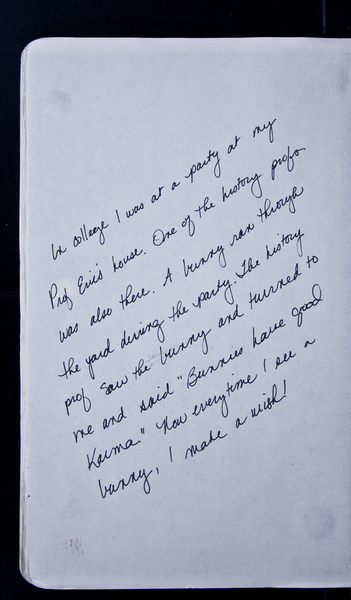 In college I was at a party at my
Prof Eric's house. One of the history profs
was also there. A bunny ran through
the yard during the party. The history
prof saw the bunny and turrned to
me and said "Bunnies have good
Karma." Now everytime I see a
bunny, I made a wish!